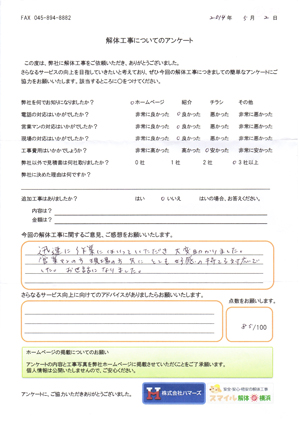 FAX 045-894-8882
2019年 5月 2日
解体工事についてのアンケート
この度は、弊社に解体工事をご依頼いただき、ありがとうございました。
さらなるサービスの向上を目指していきたいと考えており、ぜひ今回の解体工事につきましての簡単なアンケートにご
協力をお願いたします。該当するところに〇をつけてください。
弊社を何でお知りになりましたか？ ○ホームページ 紹介 チラシ その他
電話の対応はいかがでしたか？ 非常に良かった ○良かった 悪かった 非常に悪かった
営業マンの対応はいかがでしたか？ 非常に良かった ○良かった 悪かった 非常に悪かった
現場の対応はいかがでしたか？ 非常に良かった ○良かった 悪かった 非常に悪かった
工事費用はいかがでしょうか？ 非常に高かった 高かった ○安かった 非常に安かった
弊社以外で見積書は何社取りましたか？ 0 社 1 社 2 社 ○3 社以上
弊社に決めた理由は何ですか？
追加工事はありましたか？ はい ○いいえ はいの場合、お答えください。
内容は？
金額は？
今回の解体工事に関するご意見、ご感想をお願いいたします。
迅速に作業にはいっていただき大変助かりました。
営業マンの方、現場の方、共にとても好感の持てる対応で
した。お世話になりました。
さらなるサービス向上に向けてのアドバイスがありましたらお願いいたします。
点数をお願します。
85/100
ホームページの掲載についてのお願い
アンケートの内容と工事写真を弊社ホームページに掲載させていただくことをご了承願います。
個人情報は公開いたしませんので、ご安心ください。
アンケートに、ご協力いただきありがとうございました。
H 株式会社ハマーズ
安全・安心・格安の解体工事
スマイル解体@横浜